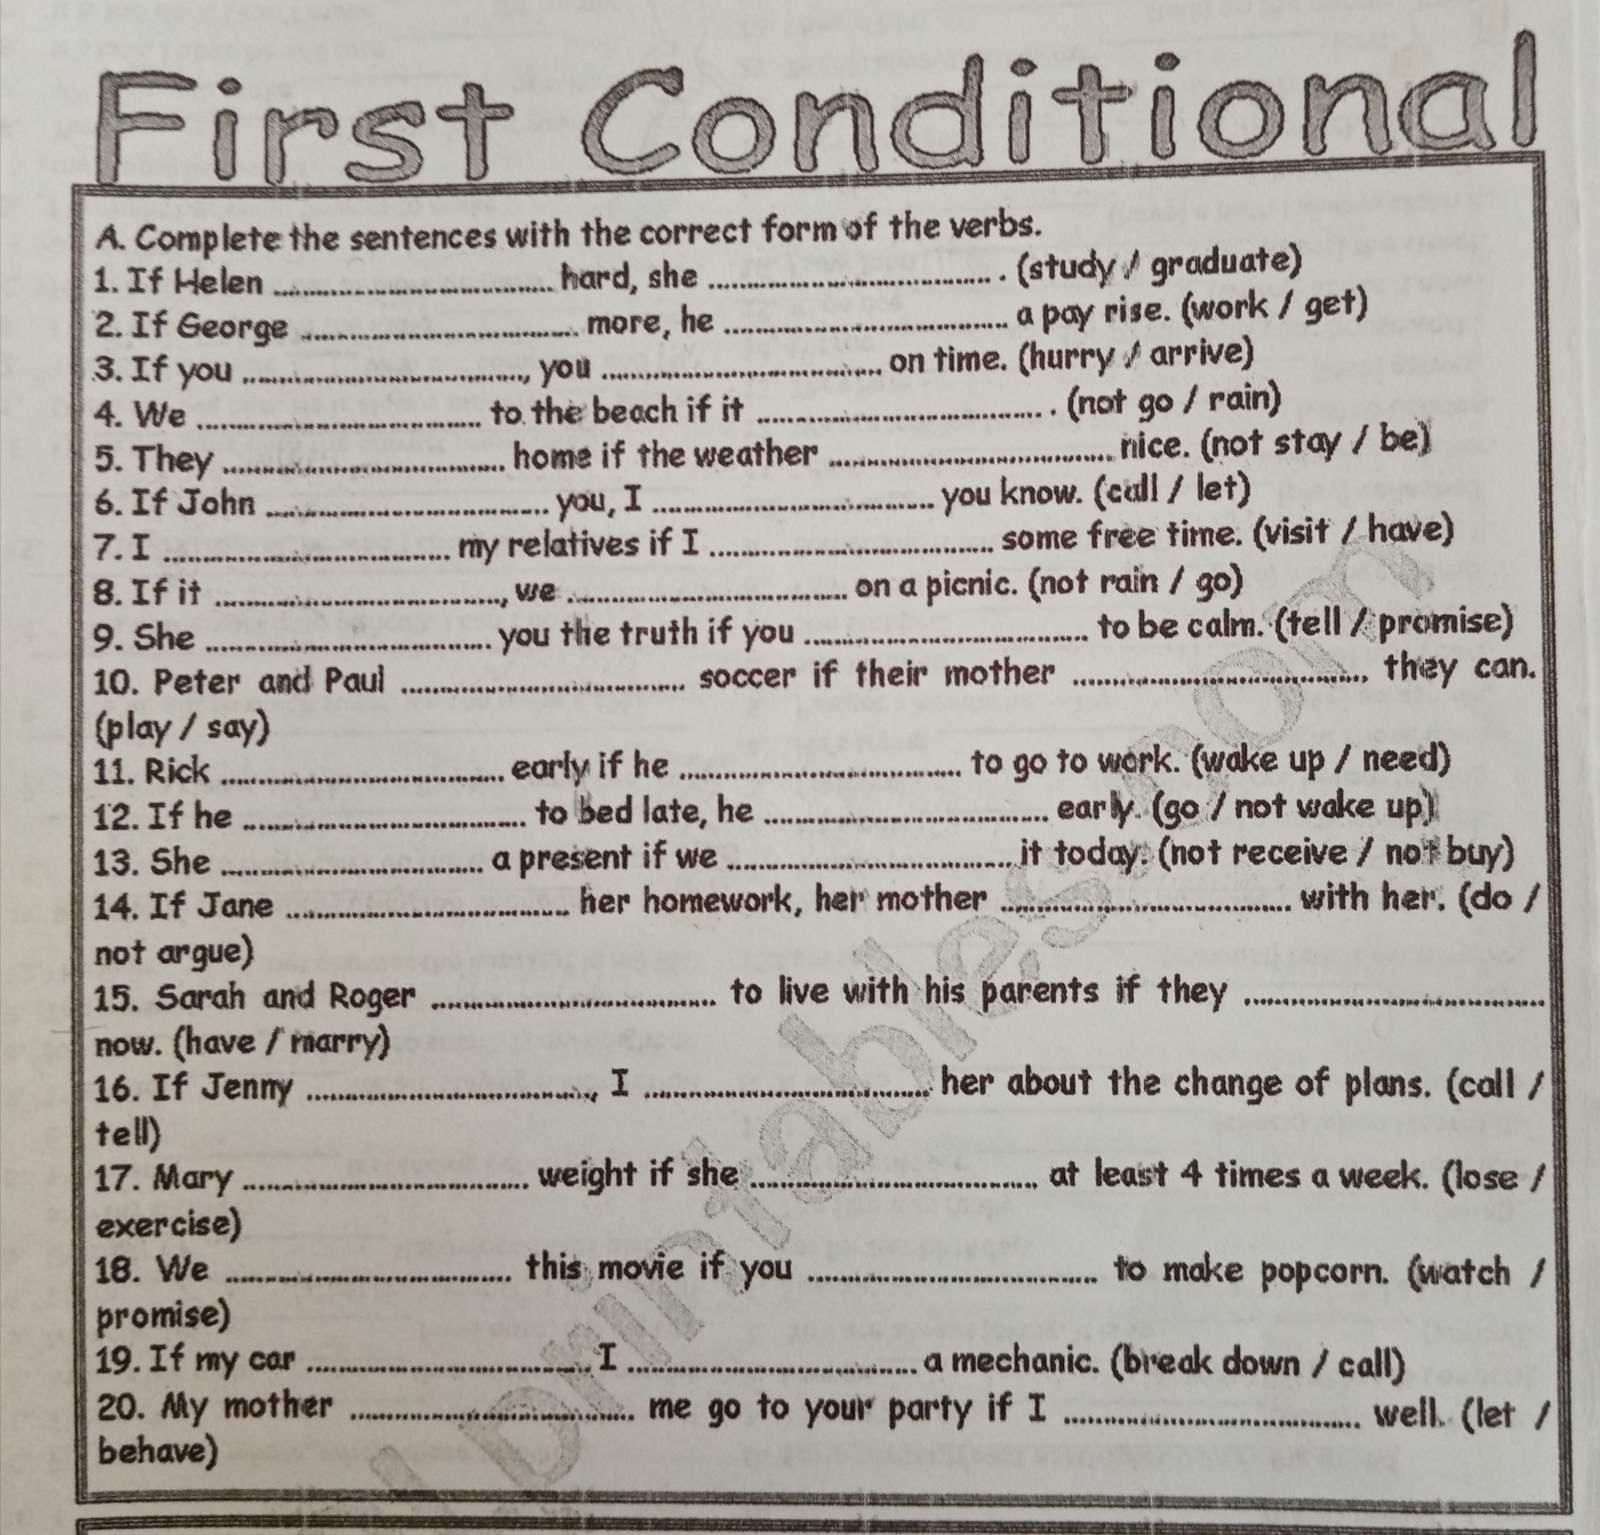 First Conditional
A. Complete the sentences with the correct form of the verbs.
1. If Helen ................................ hard, she ................................ . (study / graduate)
2. If George ................................ more, he ................................ a pay rise. (work / get)
3. If you ................................, you ................................ on time. (hurry / arrive)
4. We ................................ to the beach if it ................................ . (not go / rain)
5. They ................................ home if the weather ................................ nice. (not stay / be)
6. If John ................................ you, I ................................ you know. (call / let)
7. I ................................ my relatives if I ................................ some free time. (visit / have)
8. If it ................................, we ................................ on a picnic. (not rain / go)
9. She ................................ you the truth if you ................................ to be calm. (tell / promise)
10. Peter and Paul ................................ soccer if their mother ................................, they can.
(play / say)
11. Rick ................................ early if he ................................ to go to work. (wake up / need)
12. If he ................................ to bed late, he ................................ early. (go / not wake up)
13. She ................................ a present if we ................................ it today. (not receive / not buy)
14. If Jane ................................ her homework, her mother ................................ with her. (do /
not argue)
15. Sarah and Roger ................................ to live with his parents if they ................................
now. (have / marry)
16. If Jenny ................................, I ................................ her about the change of plans. (call /
tell)
17. Mary ................................ weight if she ................................ at least 4 times a week. (lose /
exercise)
18. We ................................ this movie if you ................................ to make popcorn. (watch /
promise)
19. If my car ................................, I ................................ a mechanic. (break down / call)
20. My mother ................................ me go to your party if I ................................ well. (let /
behave)
printables.com